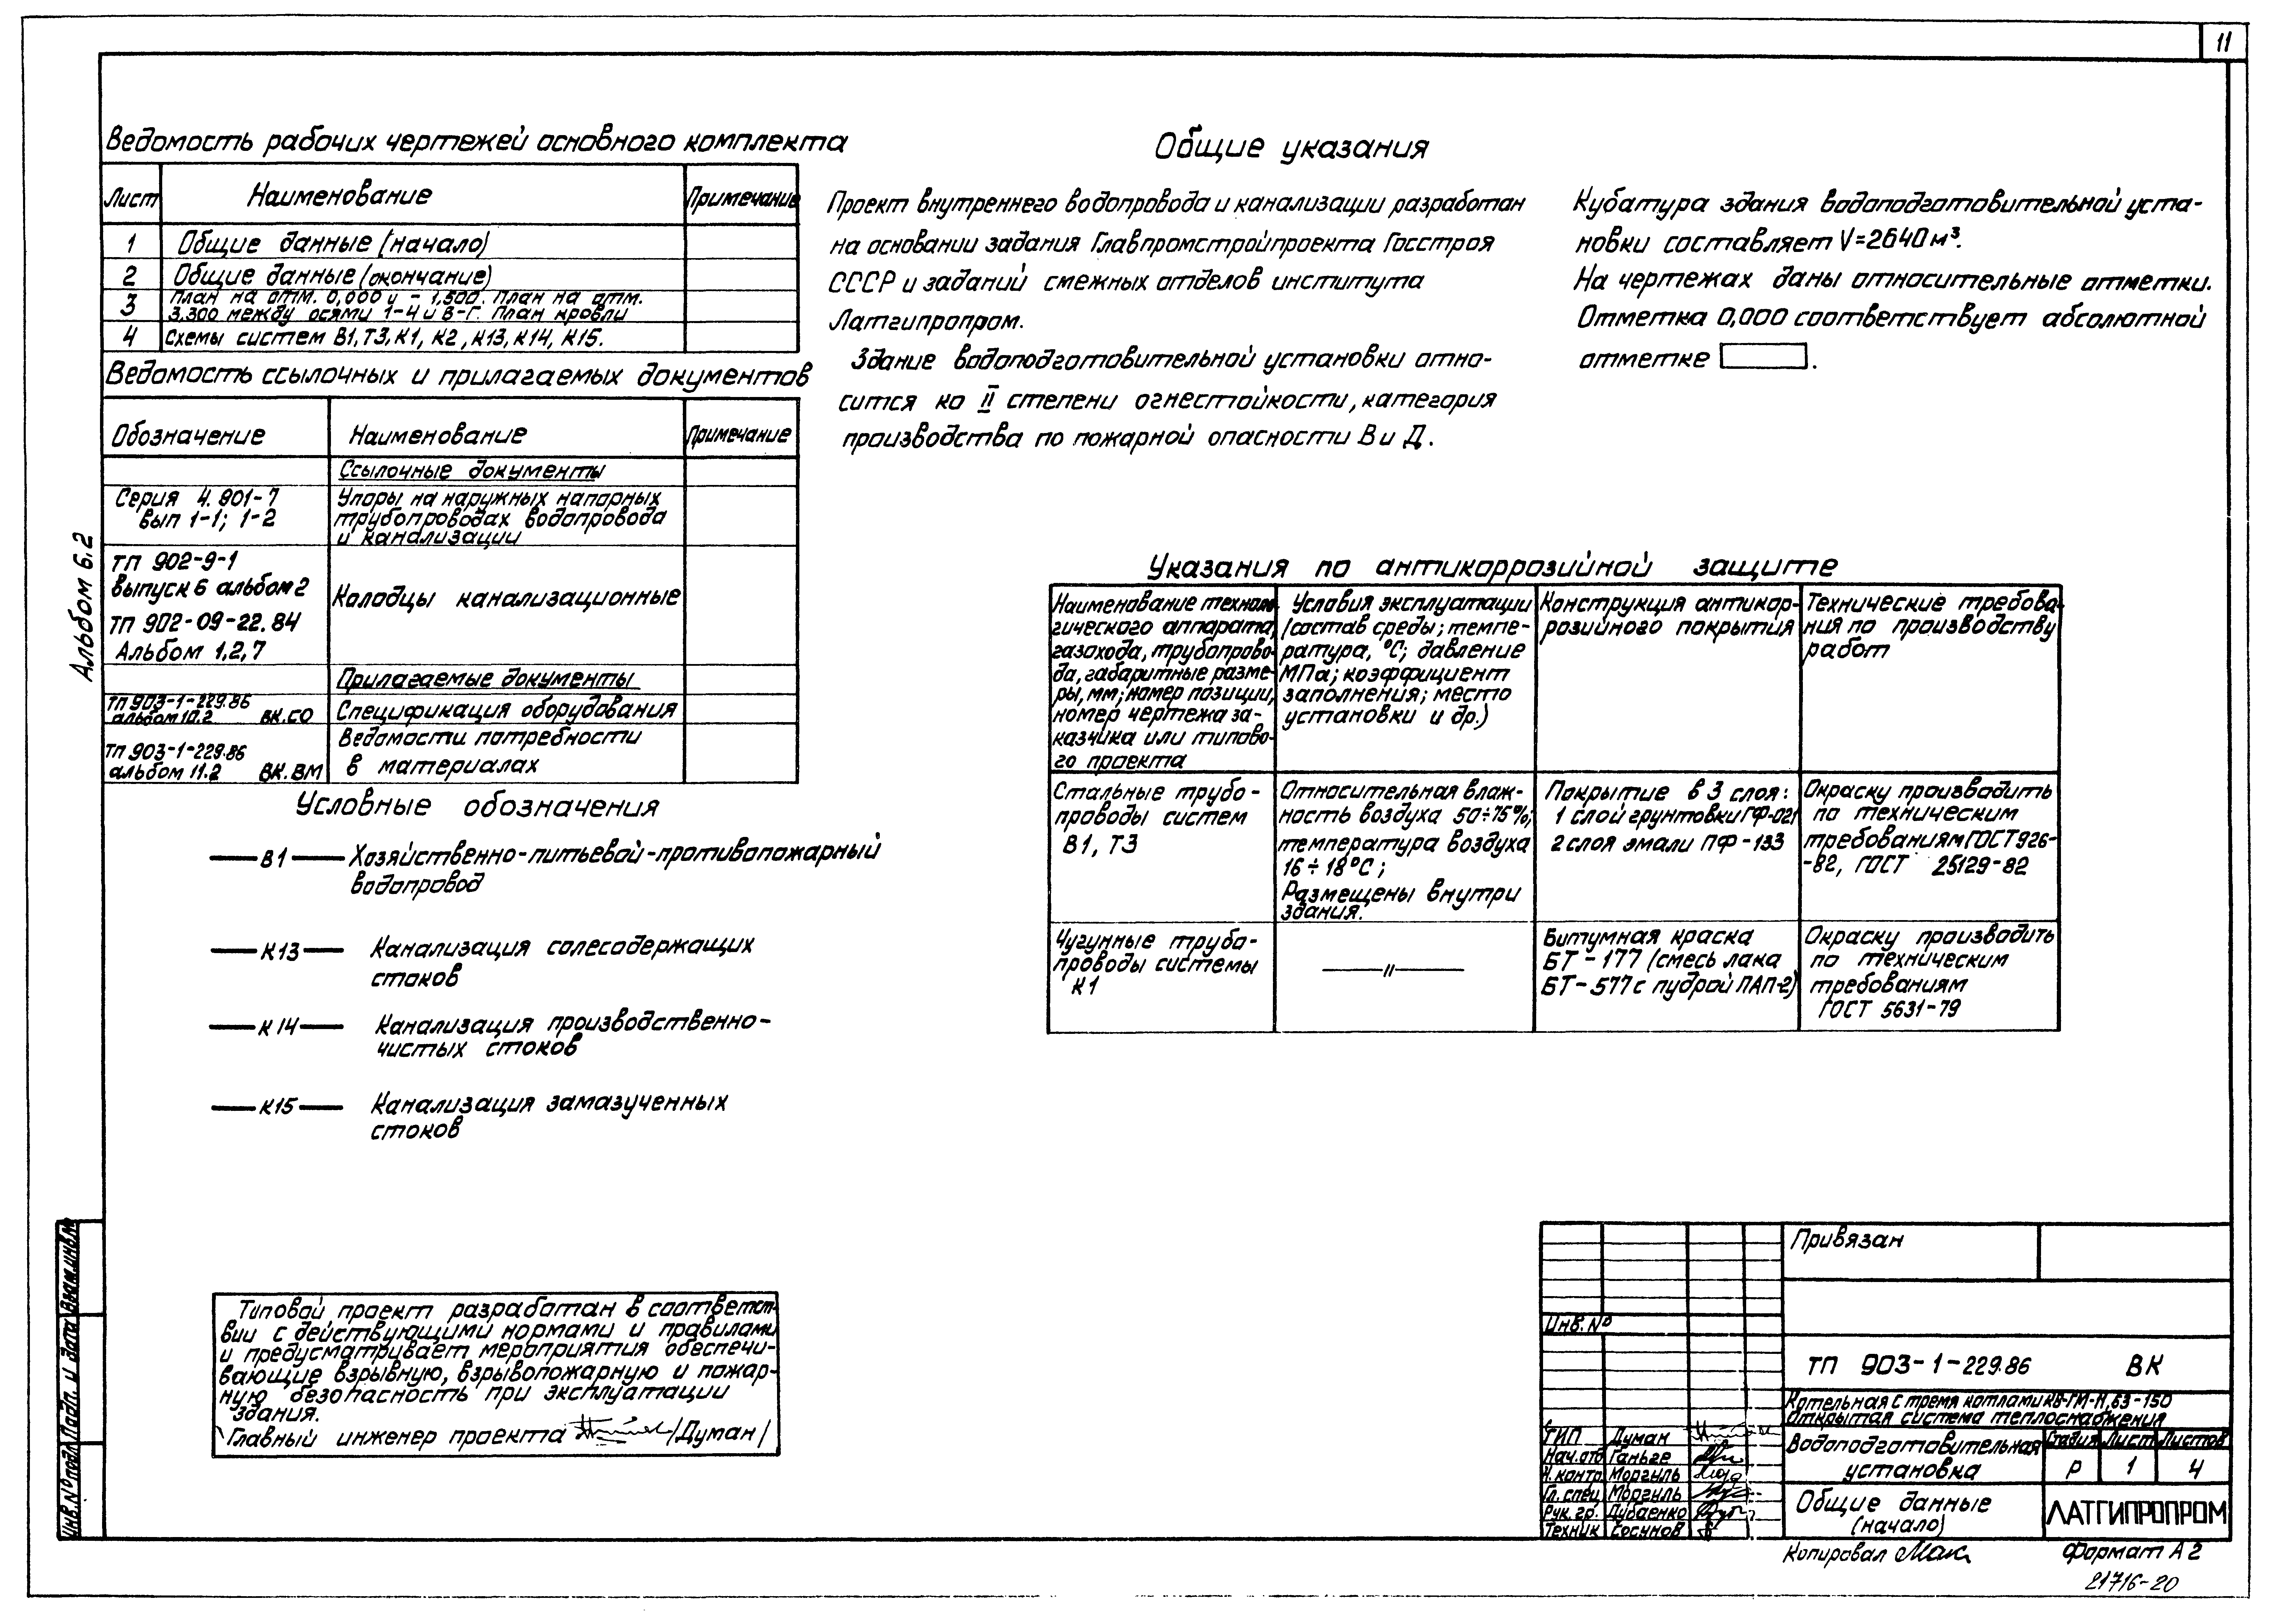 11
Альбом 6.2
Ведомость рабочих чертежей основного комплекта
Лист Наименование Примечание
1 Общие данные (начало)
2 Общие данные (окончание)
3 План на отм. 0,000 и -1,500. План на отм.
3,300 между осями 1-4 и В-Г. План кровли
4 Схемы систем В1, Т3, К1, К2, К13, К14, К15.
Ведомость ссылочных и прилагаемых документов
Обозначение Наименование Примечание
Ссылочные документы
Серия 4.901-7 Упоры на наружных напорных
вып 1-1; 1-2 трубопроводах водопровода
и канализации
ТП 902-9-1
выпуск 6 альбом 2
Колодцы канализационные
ТП 902-09-22.84
Альбом 1,2,7
Прилагаемые документы
ТП 903-1-229.86
альбом 10.2 ВК.СО Спецификация оборудования
ТП 903-1-229.86 Ведомости потребности
альбом 11.2 ВК.ВМ в материалах
Условные обозначения
В1 Хозяйственно-питьевой-противопожарный
водопровод
К13 Канализация солесодержащих
стоков
К14 Канализация производственно-
чистых стоков
К15 Канализация замазученных
стоков
Типовой проект разработан в соответст-
вии с действующими нормами и правилами
и предусматривает мероприятия обеспечи-
вающие взрывную, взрывопожарную и пожар-
ную безопасность при эксплуатации
здания.
Главный инженер проекта /Думан/
Общие указания
Проект внутреннего водопровода и канализации разработан
на основании задания Главпромстройпроекта Госстроя
СССР и заданий смежных отделов института
Латгипропром.
Здание водоподготовительной установки отно-
сится ко II степени огнестойкости, категория
производства по пожарной опасности В и Д.
Кубатура здания водоподготовительной уста-
новки составляет V=2640 м³.
На чертежах даны относительные отметки.
Отметка 0,000 соответствует абсолютной
отметке .
Указания по антикоррозийной защите
Наименование техноло-
гического аппарата,
газохода, трубопрово-
да, габаритные разме-
ры, мм; номер позиции,
номер чертежа за-
казчика или типово-
го проекта
Условия эксплуатации
(состав среды; темпе-
ратура, °С; давление
МПа; коэффициент
заполнения; место
установки и др.)
Конструкция антикор-
розийного покрытия
Технические требова-
ния по производству
работ
Стальные трубо-
проводы систем
В1, Т3
Относительная влаж-
ность воздуха 50÷75%;
температура воздуха
16÷18°С;
Размещены внутри
здания.
Покрытие в 3 слоя:
1 слой грунтовки ГФ-021
2 слоя эмали ПФ-133
Окраску производить
по техническим
требованиям ГОСТ 926-
-82, ГОСТ 25129-82
Чугунные трубо-
проводы системы
К1
—〃—
Битумная краска
БТ-177 (смесь лака
БТ-577 с пудрой ПАП-2)
Окраску производить
по техническим
требованиям
ГОСТ 5631-79
Привязан
Инв. №
ТП 903-1-229.86 ВК
Котельная с тремя котлами КВ-ГМ-11,63-150
Открытая система теплоснабжения
ГИП Думан
Нач.отд Ганьге
Н.контр Моргыль
Гл.спец Моргыль
Рук.гр. Дубаенко
Техник Сосунов
Водоподготовительная
установка
Стадия Лист Листов
Р 1 4
Общие данные
(начало)
ЛАТГИПРОПРОМ
Копировал Мак
Формат А2
21716-20
Взам.инв.№
Подп. и дата
Инв.№ подл